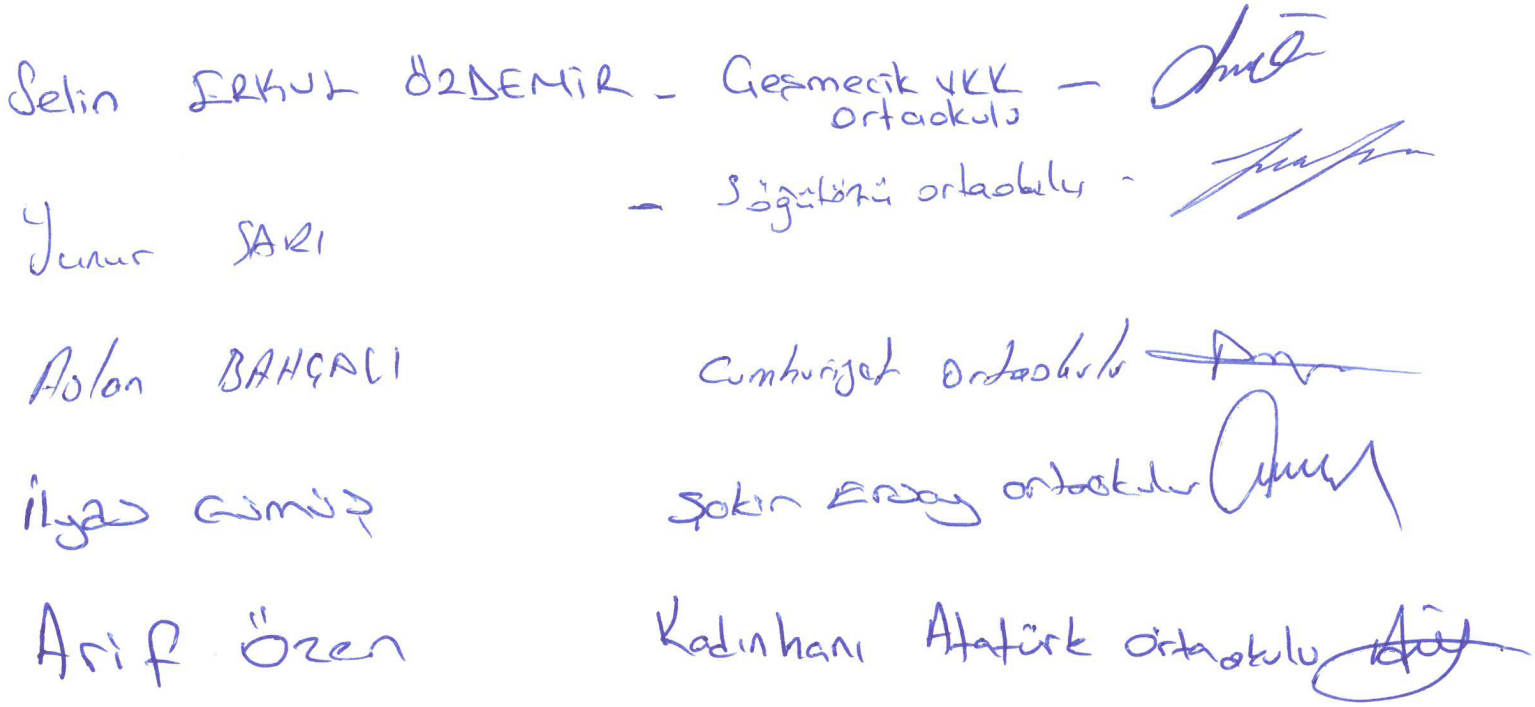 Selin ERKUL ÖZDEMİR - Geşmecik VKK -
Ortaokulu
- Söğütözü ortaokulu -
Yunus SARI
Aslan BAHÇACI Cumhuriyet Ortaokulu
İlyas Gümüş Şakin Ersoy ortaokulu
Arif Özen Kadınhanı Atatürk Ortaokulu